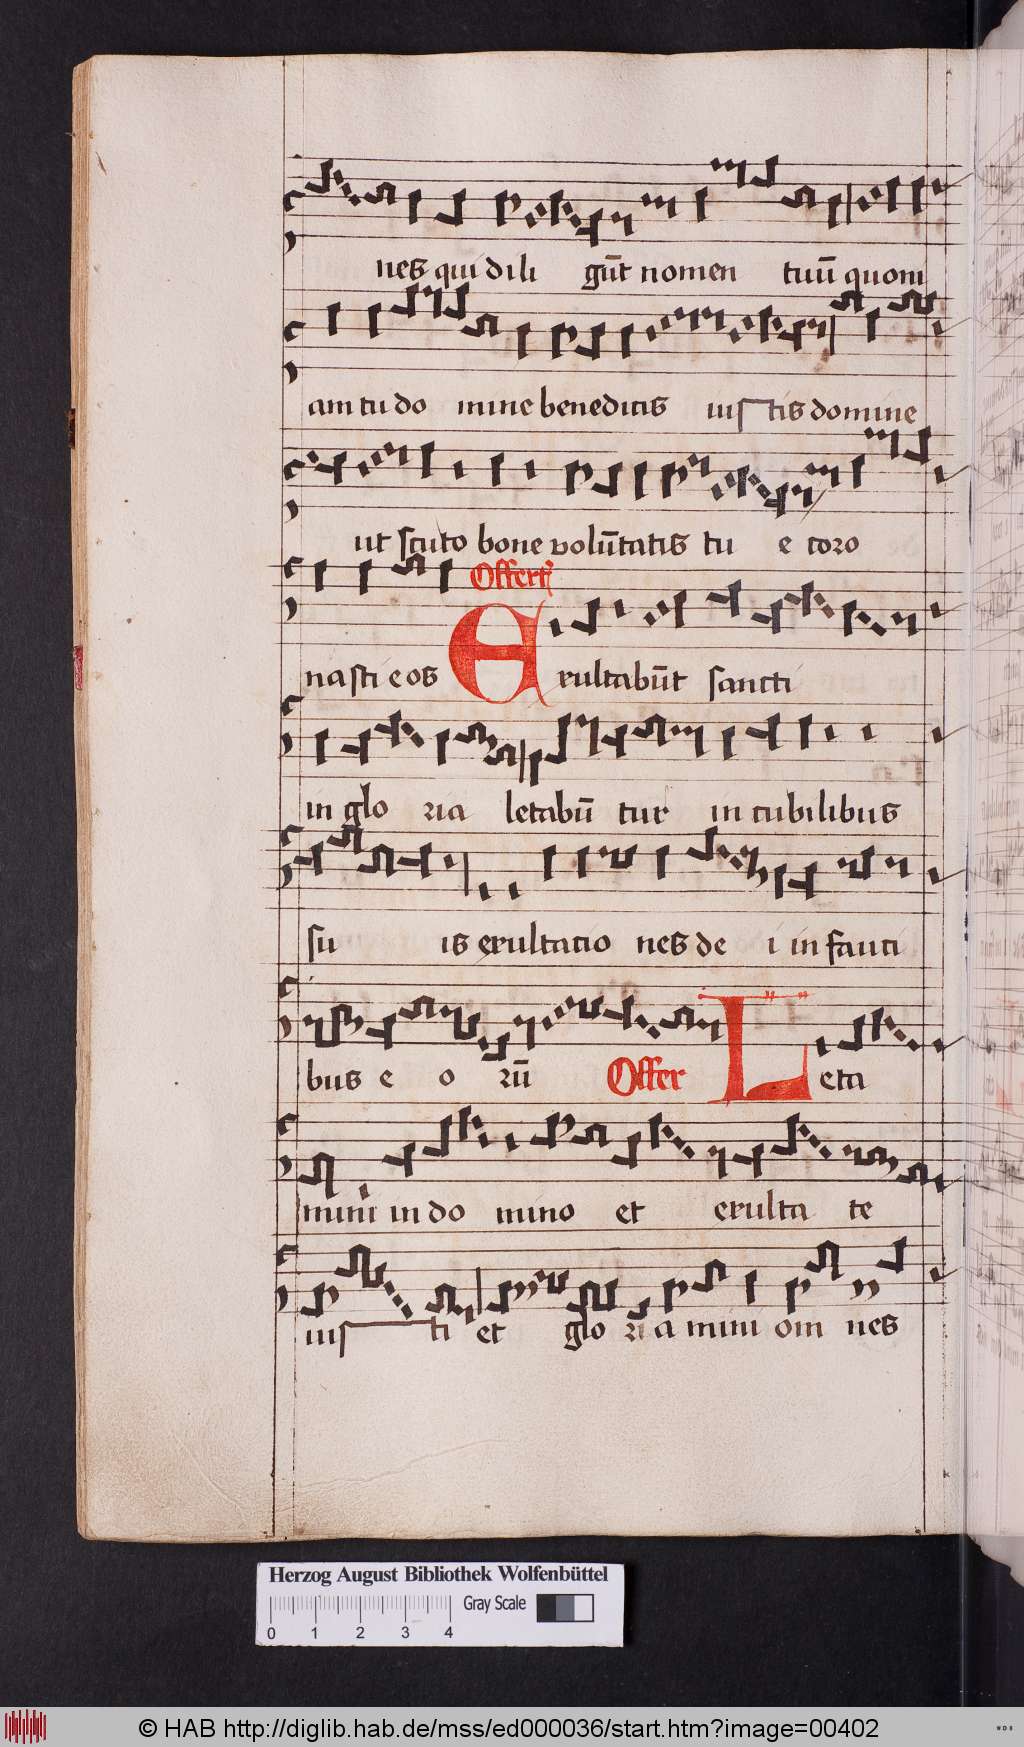 nes qui dili gūt nomen tuū quoni
am tu do mine benedicis iustis domine
ut scuto bone volūtatis tu e coro
Offert
nasti eos Exultabūt sancti
in glo ria letabū tur in cubilibus
su is exultacio nes de i in fauci
bus e o rū Offer Leta
mini in do mino et exulta te
ius ti et glo ria mini om nes
Herzog August Bibliothek Wolfenbüttel
Gray Scale
0 1 2 3 4
© HAB http://diglib.hab.de/mss/ed000036/start.htm?image=00402